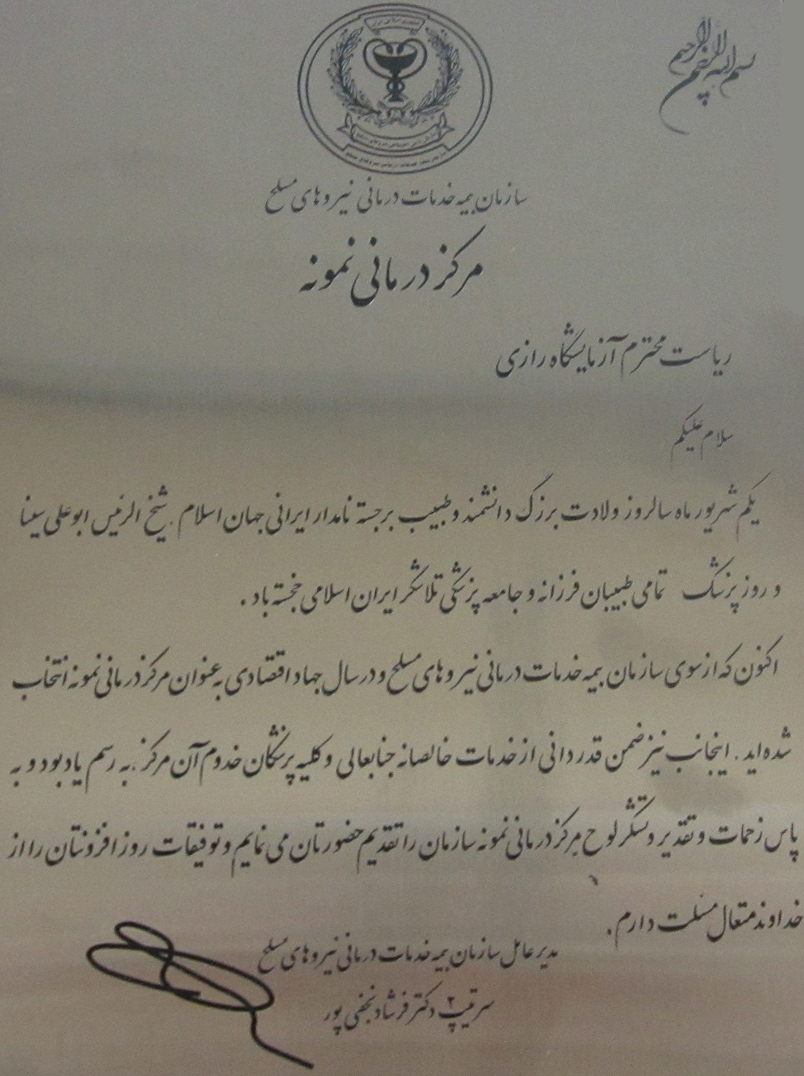 بسم الله الرحمن الرحیم
سازمان بیمه خدمات درمانی نیروهای مسلح
مرکز درمانی نمونه
ریاست محترم آزمایشگاه رازی
سلام علیکم
یکم شهریور ماه سالروز ولادت بزرگ دانشمند و طبیب برجسته نامدار ایرانی جهان اسلام . شیخ الرئیس ابوعلی سینا
و روز پزشک تمامی طبیبان فرزانه و جامعه پزشکی تلاشگر ایران اسلامی خجسته باد .
اکنون که از سوی سازمان بیمه خدمات درمانی نیروهای مسلح و در سال جهاد اقتصادی به عنوان مرکز درمانی نمونه انتخاب
شده اید . اینجانب نیز ضمن قدردانی از خدمات خالصانه جنابعالی و کلیه پزشکان خدوم آن مرکز . به رسم یادبود و به
پاس زحمات و تقدیر و تشکر لوح مرکز درمانی نمونه سازمان را تقدیم حضورتان می نمایم و توفیقات روز افزونتان را از
خداوند متعال مسئلت دارم .
مدیر عامل سازمان بیمه خدمات درمانی نیروهای مسلح
سرتیپ ۲ دکتر فرشاد نجفی پور